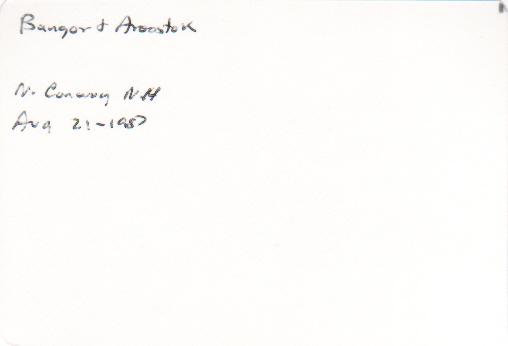 Bangor & Aroostok
N. Conway NH
Aug 21-1987